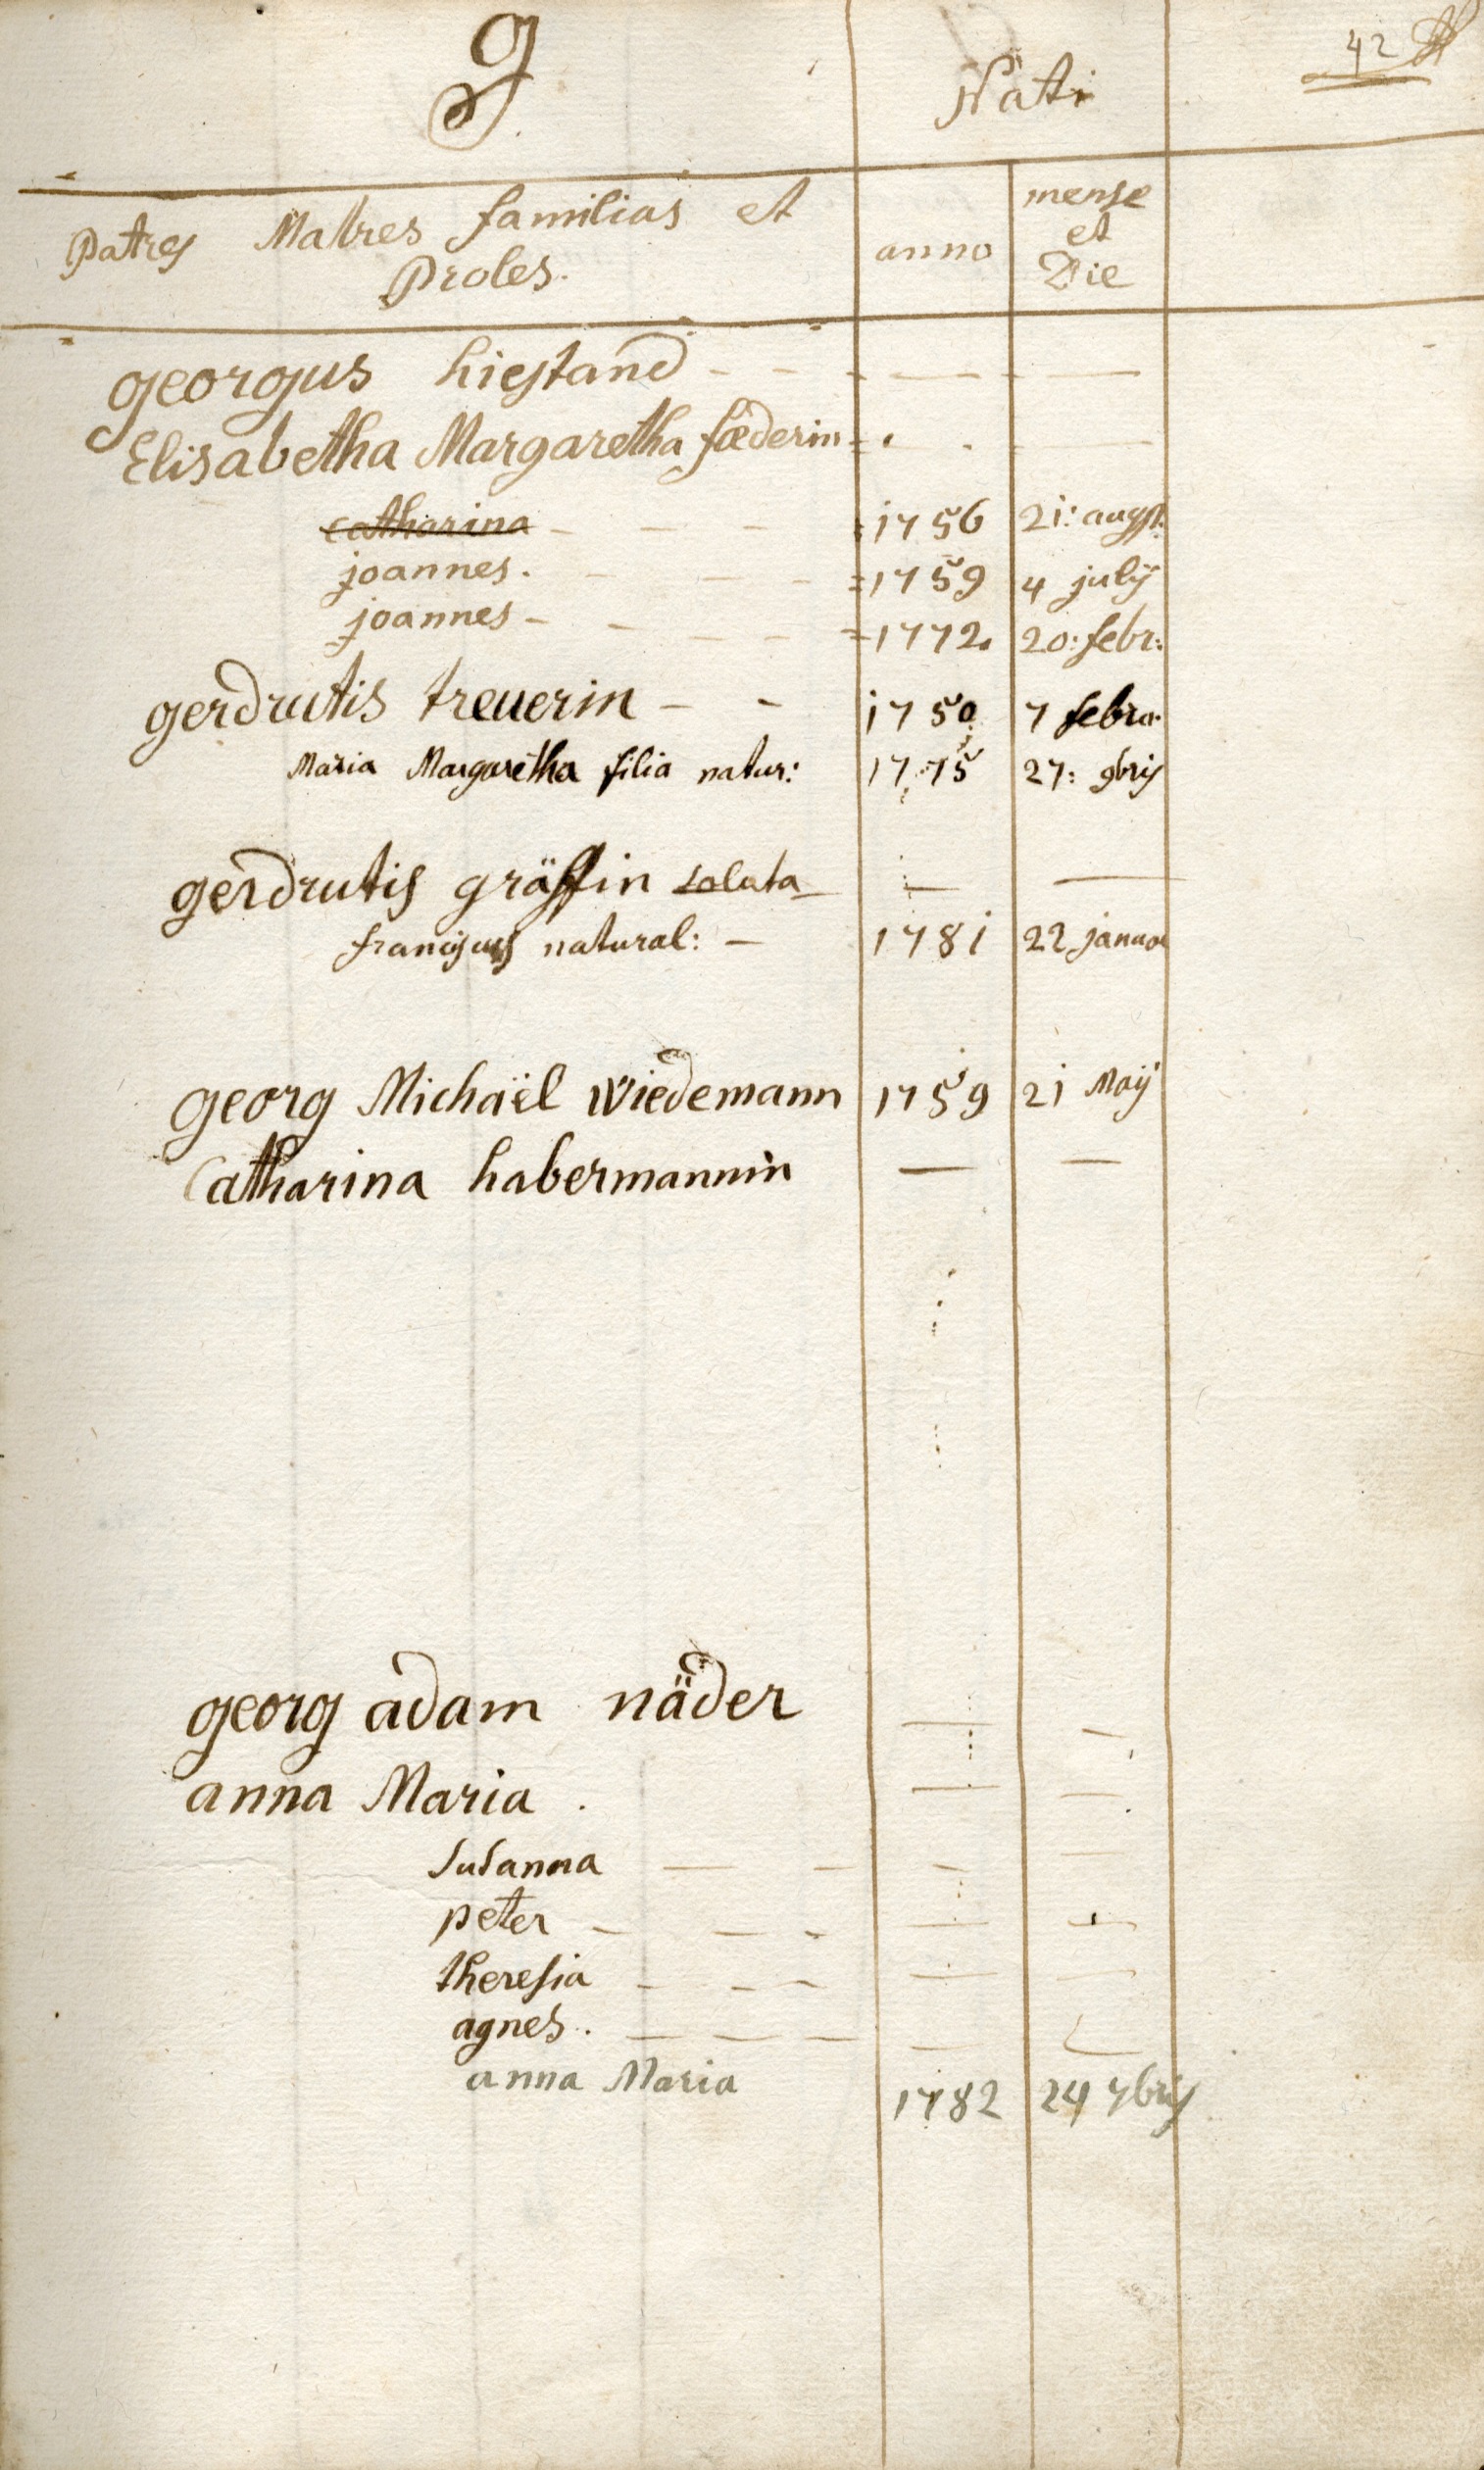 G Nati 42
Patres Matres familias et Proles. anno mense et Die
georgius hiestand - - - - -
Elisabetha Margaretha fæderin - - -
catharina - - - 1756 21: augst:
joannes. - - - 1759 4 julÿ
joannes - - - - 1772. 20: febr:
gerdrutis treuerin - - 1750 7 febra.
Maria Margaretha filia natur: 1775 27: 9bris
gerdrutis gräffin soluta - -
franciscus natural: - 1781 22 janua
georg Michaël wiedemann 1759 21 Maÿ
Catharina habermannin - -
georg adam näder - -
anna Maria. - -
Susanna - - - -
peter - - - - -
theresia - - - - -
agnes. - - - - -
anna Maria 1782 24 7bris